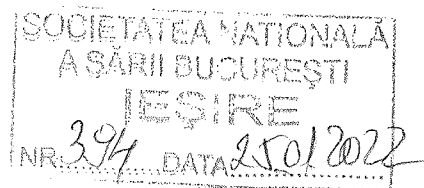 SOCIETATEA NATIONALĂ
A SĂRII BUCUREȘTI
IEȘIRE
NR. 394 DATA 25 01 2022